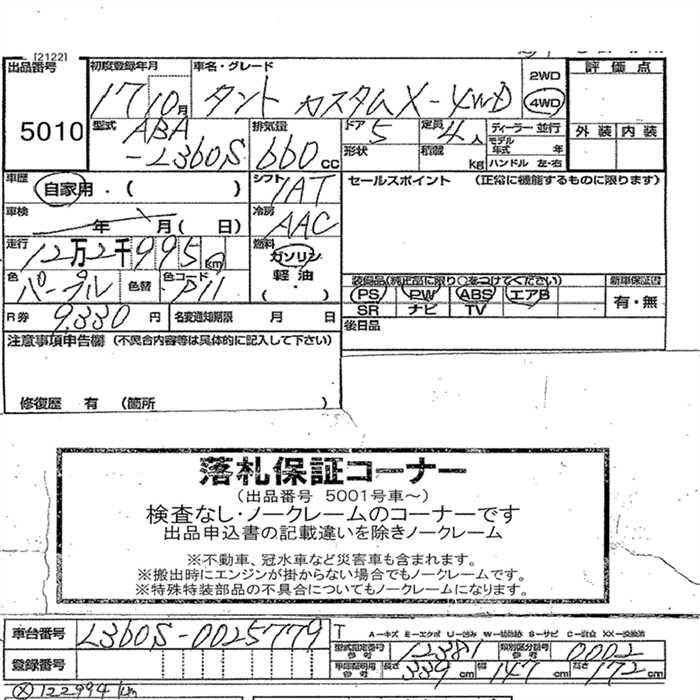 [2122]
出品番号 初度登録年月 車名・グレード 2WD 評価点
5010 17 10月 タント カスタムX-4WD 4WD
型式 排気量 ドア 定員 ディーラー 並行 外装 内装
ABA 660cc 5 4人 モデル年式 年
-L360S 形状 積載 kg ハンドル 左・右
車歴 自家用・( ) シフト IAT セールスポイント (正常に機能するものに限ります)
車検 年 月( 日) 冷房 AAC
走行 12万2千995km 燃料 ガソリン
色 パープル 色替 色コード P11 軽油 装備品(純正品に限り○をつけてください) 新車保証書
( ・ ) PS PW ABS エアB 有・無
R券 9,330円 名変通知期限 月 日 SR ナビ TV
注意事項申告欄 (不具合内容等は具体的に記入して下さい) 後日品
修復歴 有 (箇所 )
落札保証コーナー
(出品番号 5001号車~)
検査なし・ノークレームのコーナーです
出品申込書の記載違いを除きノークレーム
※不動車、冠水車など災害車も含まれます。
※搬出時にエンジンが掛からない場合でもノークレームです。
※特殊特装部品の不具合についてもノークレームになります。
車台番号 L360S-0025779 A-キズ E-エクボ U-凹み S-サビ
登録番号 型式指定番号 参考 12381 類別区分番号 参考 0002
長さ 339cm 幅 147cm 高さ 172cm
Ⓧ 122994 km